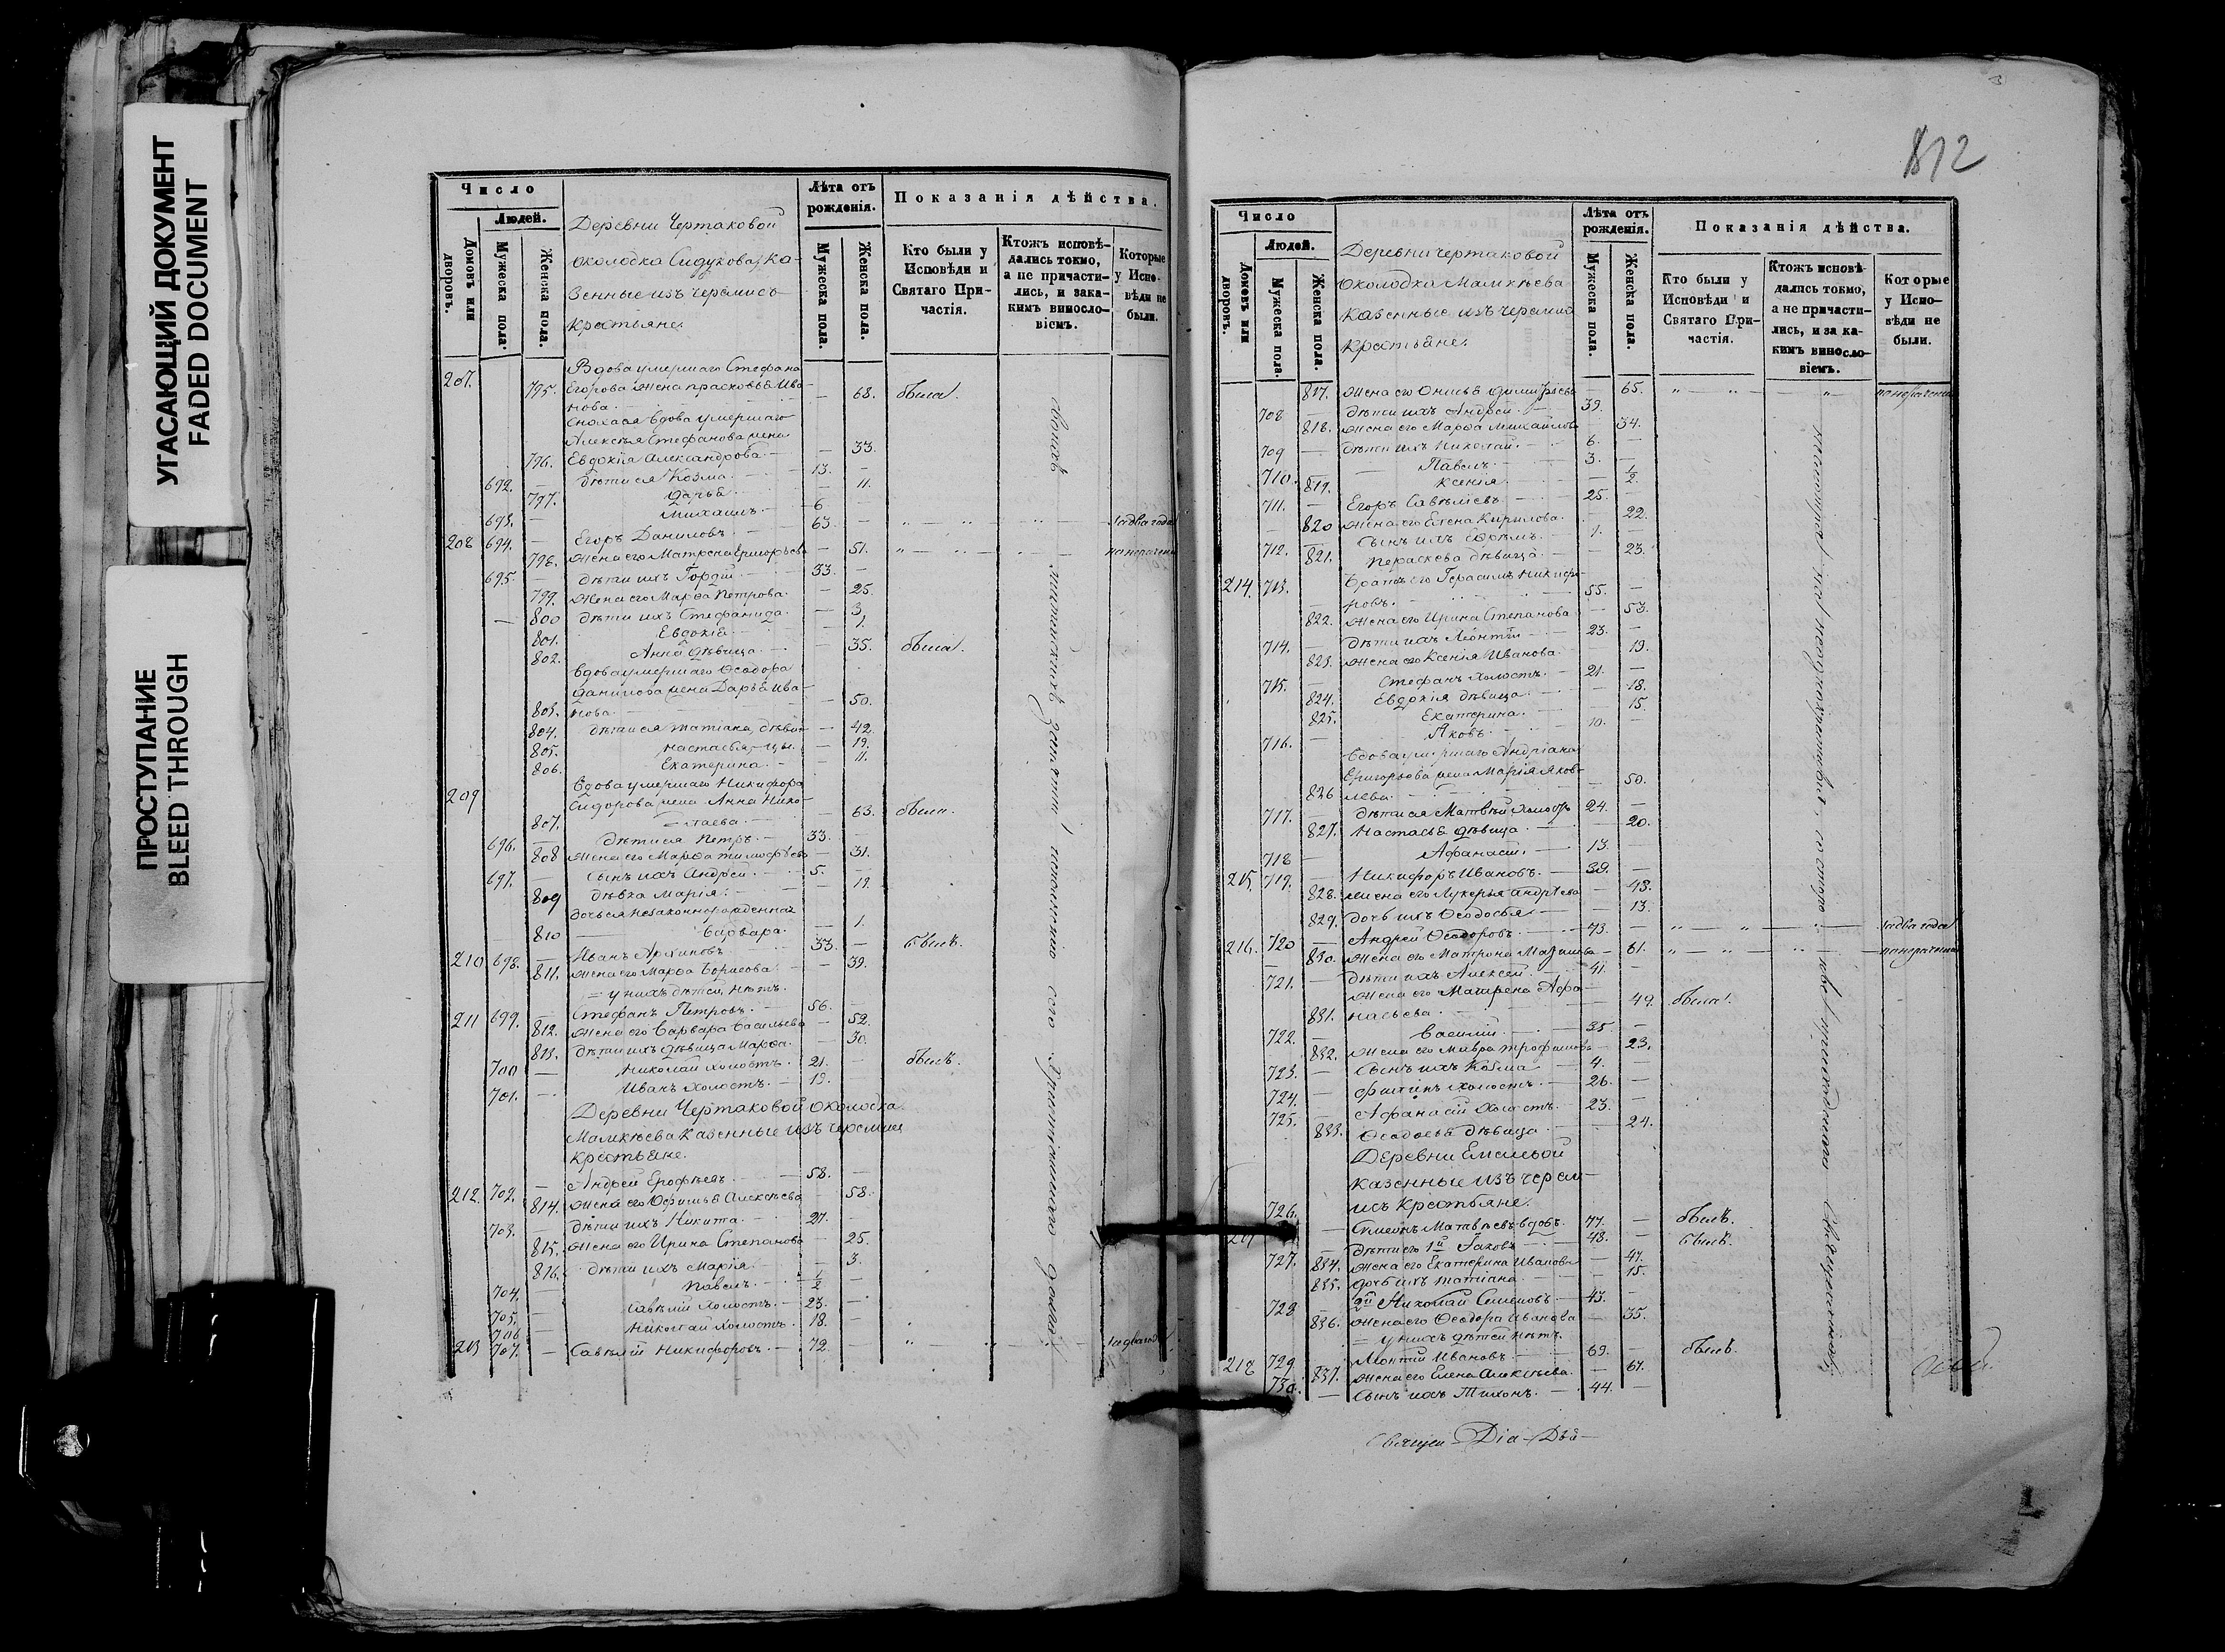 УГАСАЮЩИЙ ДОКУМЕНТ
FADED DOCUMENT
ПРОСТУПАНИЕ
BLEED THROUGH
Число
Людей.
Домовъ или дворовъ.
Мужеска пола.
Женска пола.
Деревни Чертаковой
околодка Сидукова, Ка-
зенные изъ черемисъ
крестьяне.
Лѣта отъ рожденія.
Мужеска пола.
Женска пола.
Показанія дѣйства.
Кто были у Исповѣди и Святаго Причастія.
Ктожъ исповѣдались токмо, а не причастились, и за какимъ винословіемъ.
Которые у Исповѣди не были.
Вдова умершаго Стефана
207. 795. Егорова жена Прасковья Ива- — 68. была.
нова.
Сноха ея вдова умершаго
Алексѣя Стефанова жена
796. Евдокія Александрова. — 33.
692. — дѣти ея Козма. 13. —
797. Дарья. — 11.
693. — Михаилъ. 6
208 694. — Егоръ Даниловъ. 63. — за два года
798. Жена его Матрена Григорьева — 51. по нераченію
695. — дѣти ихъ Гордѣй. 33. —
799. Жена его Марѳа Петрова. — 25.
— 800 дѣти ихъ Стефанида. — 3.
801. Евдокія. 1.
802. Анна дѣвица. — 35. была.
вдова умершаго Ѳеодора
Данилова жена Дарья Ива-
803. нова. — 50.
804. дѣти ея Татіана, дѣви- — 42.
805. Настасья цы. — 19.
806. Екатерина. — 11.
209 Вдова умершаго Никифора
Сидорова жена Анна Нико-
807. лаева. — 63. была.
696. — дѣти ея Петръ. 33. —
808 Жена его Марѳа Тимоѳѣева — 31.
697. — Сынъ ихъ Андрей. 5. —
809 дѣвка Марія. — 19.
дочь ея незаконнорожденная
810 Варвара. — 1.
210 698. — Иванъ Архиповъ 33. — былъ.
811. Жена его Марѳа Борисова. — 39.
= у нихъ дѣтей нѣтъ.
211 699. — Стефанъ Петровъ. 56.
812. Жена его Варвара Васильева — 52.
813. дѣти ихъ дѣвица Марѳа. — 30.
700 — Николай холостъ. 21. — былъ.
701. — Иванъ холостъ. 19.
Деревни Чертаковой околодка
Малкѣева казенные изъ черемис
крестьяне.
212. 702. — Андрей Ерофѣевъ. 58. —
814. Жена его Офимья Алексѣева — 58.
703. — дѣти ихъ Никита. 27. —
815. Жена его Ирина Степанова — 25.
816. дѣти ихъ Марія. — 3.
704. — Павелъ. 1/2 —
705. — Савелій холостъ. 23. —
706 — Николай холостъ. 18. —
213 707. — Савелій Никифоровъ. 72. — за два года
812
Число
Людей.
Домовъ или дворовъ.
Мужеска пола.
Женска пола.
Деревни Чертаковой
Околодка Малкѣева
казенные изъ черемис
крестьяне.
Лѣта отъ рожденія.
Мужеска пола.
Женска пола.
Показанія дѣйства.
Кто были у Исповѣди и Святаго Причастія.
Ктожъ исповѣдались токмо, а не причастились, и за какимъ винословіемъ.
Которые у Исповѣди не были.
817. Жена его Онисья Димитріева — 65. по нераченію
708 — дѣти ихъ Андрей. 39.
818. Жена его Марѳа Михайлова 34.
709 — дѣти ихъ Николай. 6. —
710. — Павелъ. 3. —
819. Ксенія. 1/2.
711. — Егоръ Савеліевъ. 25. —
820 Жена его Елена Кирилова. 22.
712. — Сынъ ихъ Ефремъ. 1.
821. Параскева дѣвица. — 23.
214. 713. Братъ его Герасимъ Никифо-
ровъ. 55. —
822. Жена его Ирина Степанова — 53.
714. — дѣти ихъ Леонтій 23. —
823. Жена его Ксенія Иванова. 19.
715. — Стефанъ холостъ. 21. —
824. Евдокія дѣвица. — 18.
825. Екатерина. 15.
716. — Яковъ. 10. —
Вдова умершаго Андріана
Григорьева жена Марія Яков-
826 лева. — 50.
717. — дѣти ея Матвѣй холостъ 24. —
827. Настасья дѣвица. — 20.
718 — Афанасій. 13. —
215 719. — Никифоръ Ивановъ. 39. —
828. Жена его Лукерья Андрѣева — 43.
829. дочь ихъ Ѳеодосья 13.
216. 720 — Андрей Ѳеодоровъ. 73. — за два года
830. Жена его Матрона — 61. по нераченію
721. — дѣти ихъ Алексѣй. 41. —
Жена его Матрена Афа-
831. насьева. 49. была.
722. — Василій. 35. —
832. Жена его Мавра Трофимова 23.
723. — Сынъ ихъ Козма 4. —
724. — холостъ. 26. —
725. — Афанасій холостъ. 23. —
833. Ѳеодосья дѣвица. 24.
Деревни
казенные изъ черем-
исъ крестьяне.
726. — Симеонъ Матвѣевъ вдовъ. 77. — былъ.
727. — дѣти его 1й Іаковъ 48. — былъ.
834. Жена его Екатерина Иванова 47.
835. дочь ихъ Татіана. — 15.
728 — 2й Николай Семеновъ. 43. —
836. Жена его Ѳеодора Иванова — 35.
= у нихъ дѣтей нѣтъ.
218 729 — Леонтій Ивановъ. 69. — былъ.
837. Жена его Елена Алексѣева. — 67.
730. — Сынъ ихъ Тихонъ. 44. —